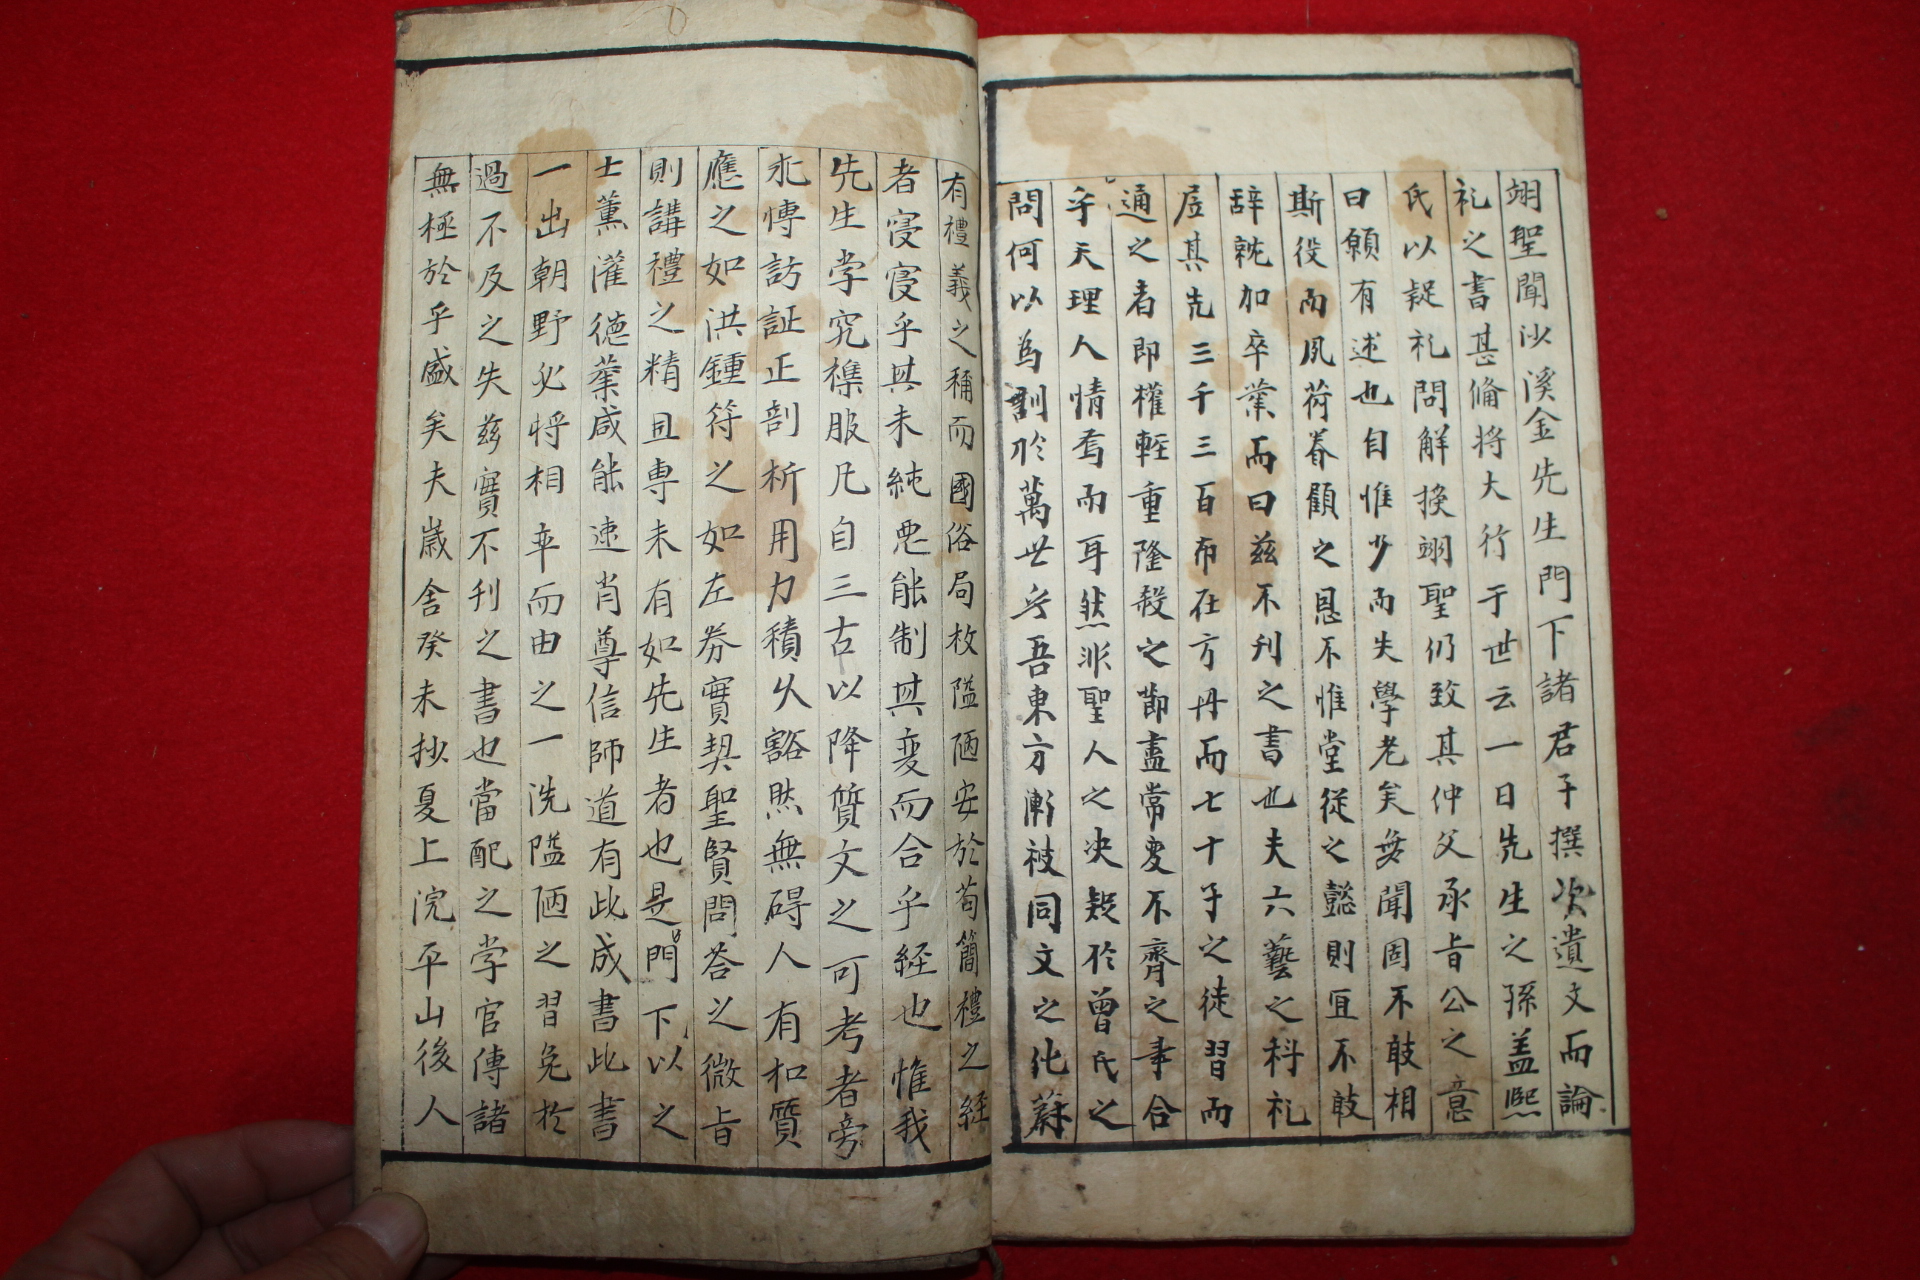 翊聖聞沙溪金先生門下諸君子撰次遺文而論
礼之書甚俻将大行于世云一日先生之孫益熙
氏以疑礼問解投翊聖仍致其仲父承旨公之意
曰願有述也自惟少而失學老矣無聞固不敢相
斯役而夙荷眷顧之恩不惟堂從之懿則宜不敢
辞就加卒業而曰兹不刊之書也夫六藝之科礼
居其先三千三百布在方冊而七十子之徒習而
通之者即權輕重隆殺之節盡常变不齊之事合
乎天理人情焉而耳然非聖人之决疑於曽氏之
問何以為訓於萬世乎吾東方漸被同文之化蔚
有禮義之稱而國俗局枚隘陋安於苟簡禮之経
者寝寝乎其未純悪能制其変而合乎経也惟我
先生学究㯮服凡自三古以降質文之可考者旁
求愽訪証正剖析用力積久豁然無碍人有扣質
應之如洪鍾符之如左劵實契聖賢問荅之微旨
則講禮之精且専未有如先生者也是門下以之
士薫灌徳業咸能速肖尊信師道有此成書此書
一出朝野必将相率而由之一洗隘陋之習免於
過不及之失兹實不刊之書也當配之学官傳諸
無極於乎盛矣夫嵗舎癸未抄夏上浣平山後人